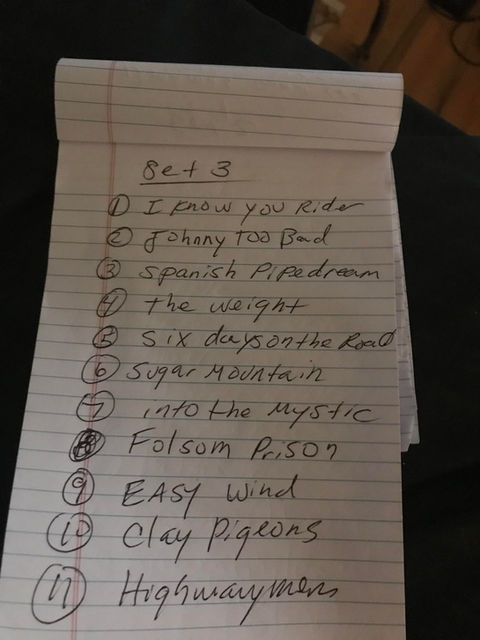 Set 3
① I know you Rider
② Johnny Too Bad
③ Spanish Pipedream
④ the weight
⑤ Six days on the Road
⑥ Sugar Mountain
⑦ into the Mystic
⑧ Folsom Prison
⑨ EASY Wind
⑩ Clay Pigeons
⑪ Highwaymen